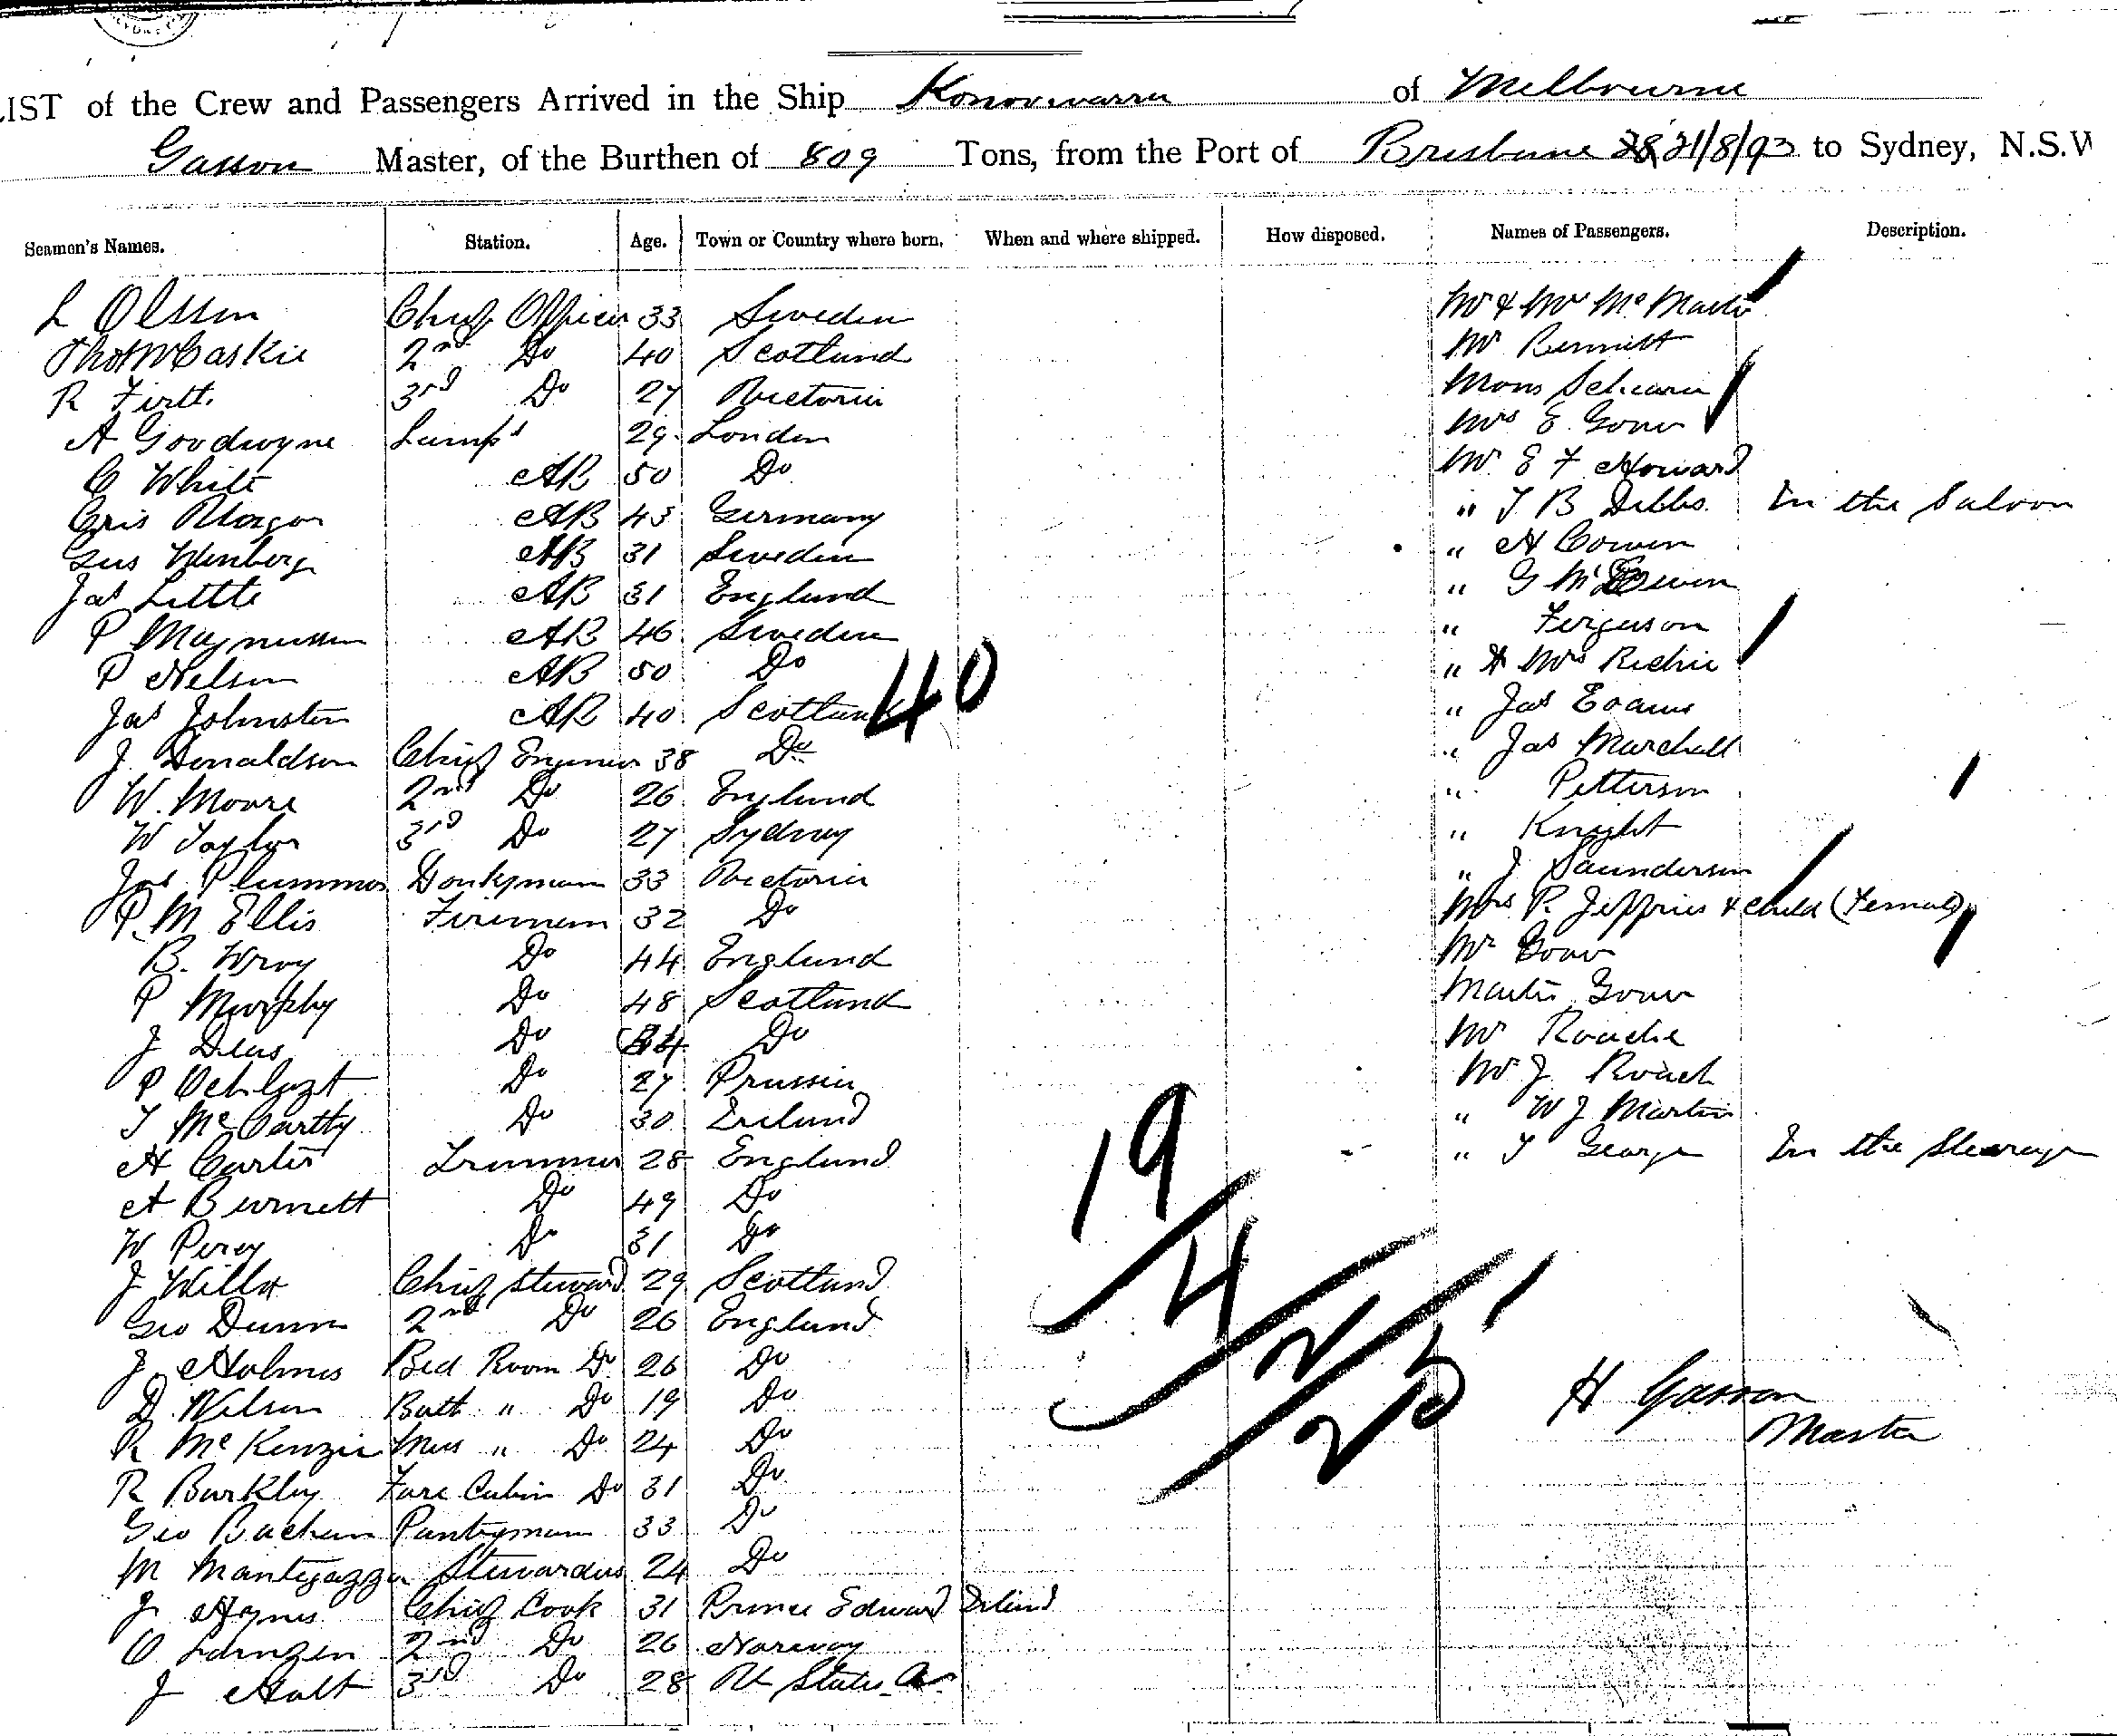 LIST of the Crew and Passengers Arrived in the Ship Konoowarra of Melbourne
Gasson Master, of the Burthen of 809 Tons, from the Port of Brisbane 21/8/93 to Sydney, N.S.W
Seamen's Names. Station. Age. Town or Country where born. When and where shipped. How disposed. Names of Passengers. Description.
L Olssen Chief Officer 33 Sweden Mr & Mrs McMaster
Thos McCaskie 2nd Do 40 Scotland Mr Bennett
R Firth 3rd Do 27 Victoria Mons
A Goodwyne Lamps 29 London Mrs E. Gower
C White AB 50 Do Mr E F Howard
Cris AB 43 Germany " T B Dibbs In the Saloon
Gus Wenberg AB 31 Sweden " A Cowen
Jas Little AB 31 England " G
P Magnussen AB 46 Sweden " Ferguson
P Nelson AB 50 Do " & Mrs Richie
Jas Johnston AB 40 Scotland " Jas Evans
40
J. Donaldson Chief Engineer 38 Do " Jas Marshall
W. Moore 2nd Do 26 England " Petterson
W Taylor 3rd Do 27 Sydney " Knight
Jas Plummer Donkyman 33 Victoria " J Saunderson
P. M Ellis Firemen 32 Do Mrs P. Jeffries & child (Female)
B. Wroy Do 44 England Mr Gower
P Murphy Do 48 Scotland Master Gower
J Deas Do 34 Do Mr Roache
P Do 27 Prussia Mr J Roach
T McCartty Do 30 Ireland " W J Martin
A Carter Trimmer 28 England " T George In the Steerage
A Burnett Do 49 Do
W Percy Do 31 Do
J Wills Chief Steward 29 Scotland
Geo Dunn 2nd Do 26 England
J Holmes Bed Room Do 26 Do
D. Wilson Bath " Do 19 Do
R McKenzie Mess " Do 24 Do
R Barkley Fore Cabin Do 31 Do
Geo Pantryman 33 Do
M Mantegazza Stewardess 24 Do
J Hynes Chief Cook 31 Prince Edward Island
O Larnzen 2nd Do 26 Norway
J Holt 3rd Do 28 Ut States Am
19
4
2
25
H Gasson
Master